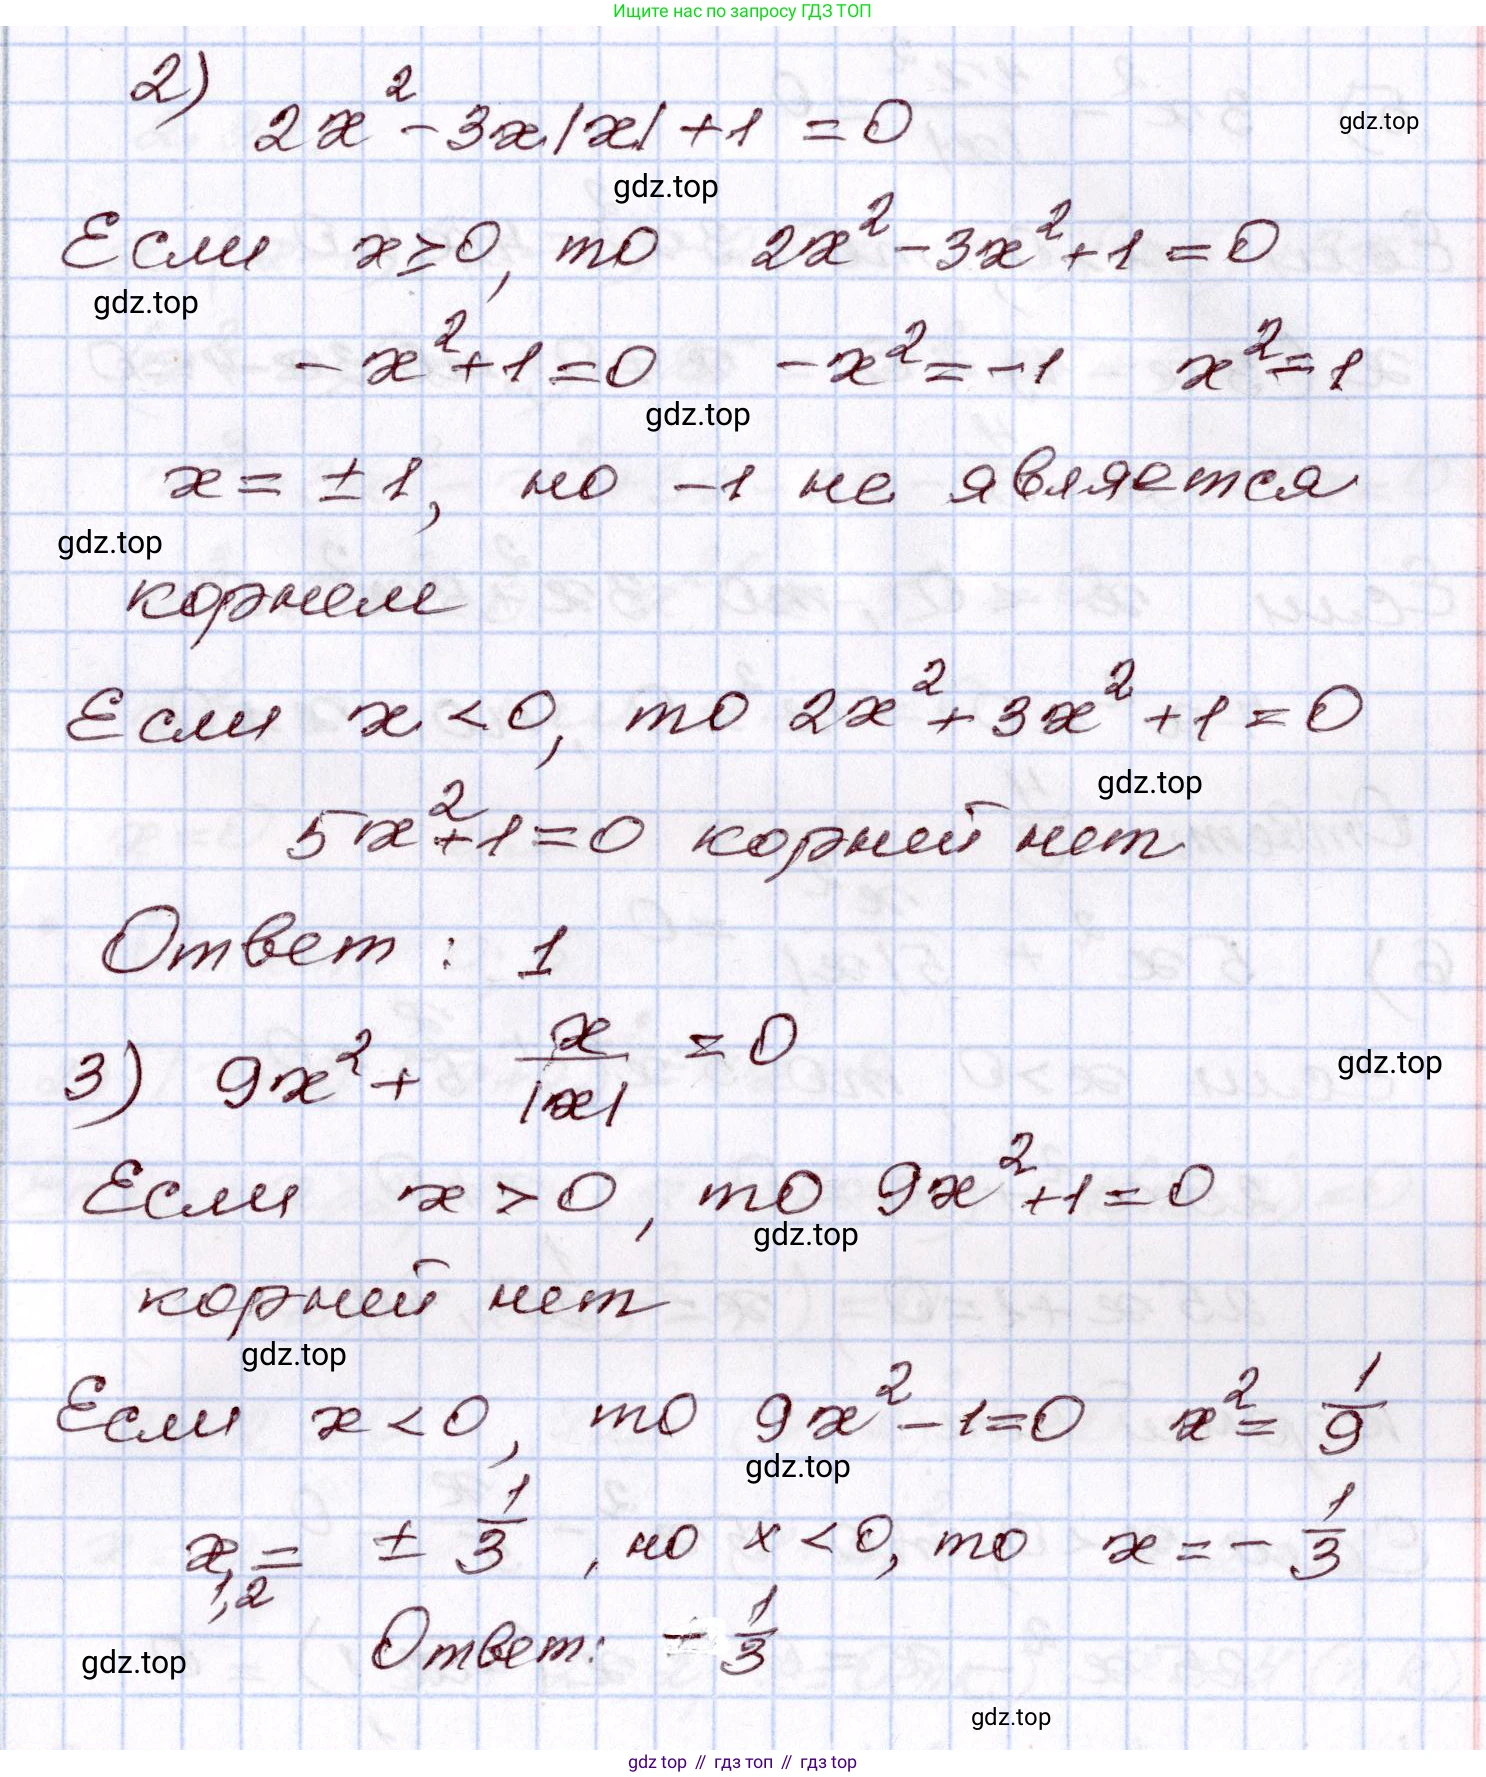 Ищите нас по запросу ГДЗ ТОП
2) 2x² - 3x|x| + 1 = 0
gdz.top
gdz.top
Если x ≥ 0, то 2x² - 3x² + 1 = 0
gdz.top
- x² + 1 = 0 - x² = - 1 x² = 1
gdz.top
x = ± 1, но - 1 не является
gdz.top
корнем
Если x < 0, то 2x² + 3x² + 1 = 0
gdz.top
5x² + 1 = 0 корней нет
Ответ: 1
3) 9x² + x/|x| = 0
gdz.top
Если x > 0, то 9x² + 1 = 0
gdz.top
корней нет
gdz.top
Если x < 0, то 9x² - 1 = 0 x² = 1/9
gdz.top
x₁,₂ = ± 1/3, но x < 0, то x = - 1/3
Ответ: - 1/3
gdz.top
gdz.top
gdz top // гдз топ // гдз top